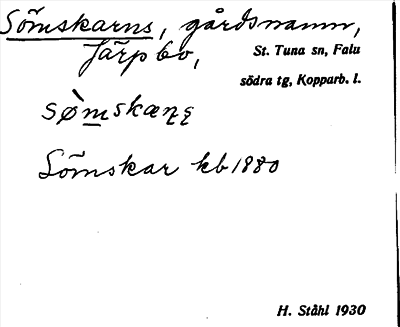 Sömskarns, gårdsnamn,
Järpbo,
St. Tuna sn, Falu
södra tg, Kopparb. l.
sø̀mskæṇṣ
Sömskar kb 1880
H. Ståhl 1930